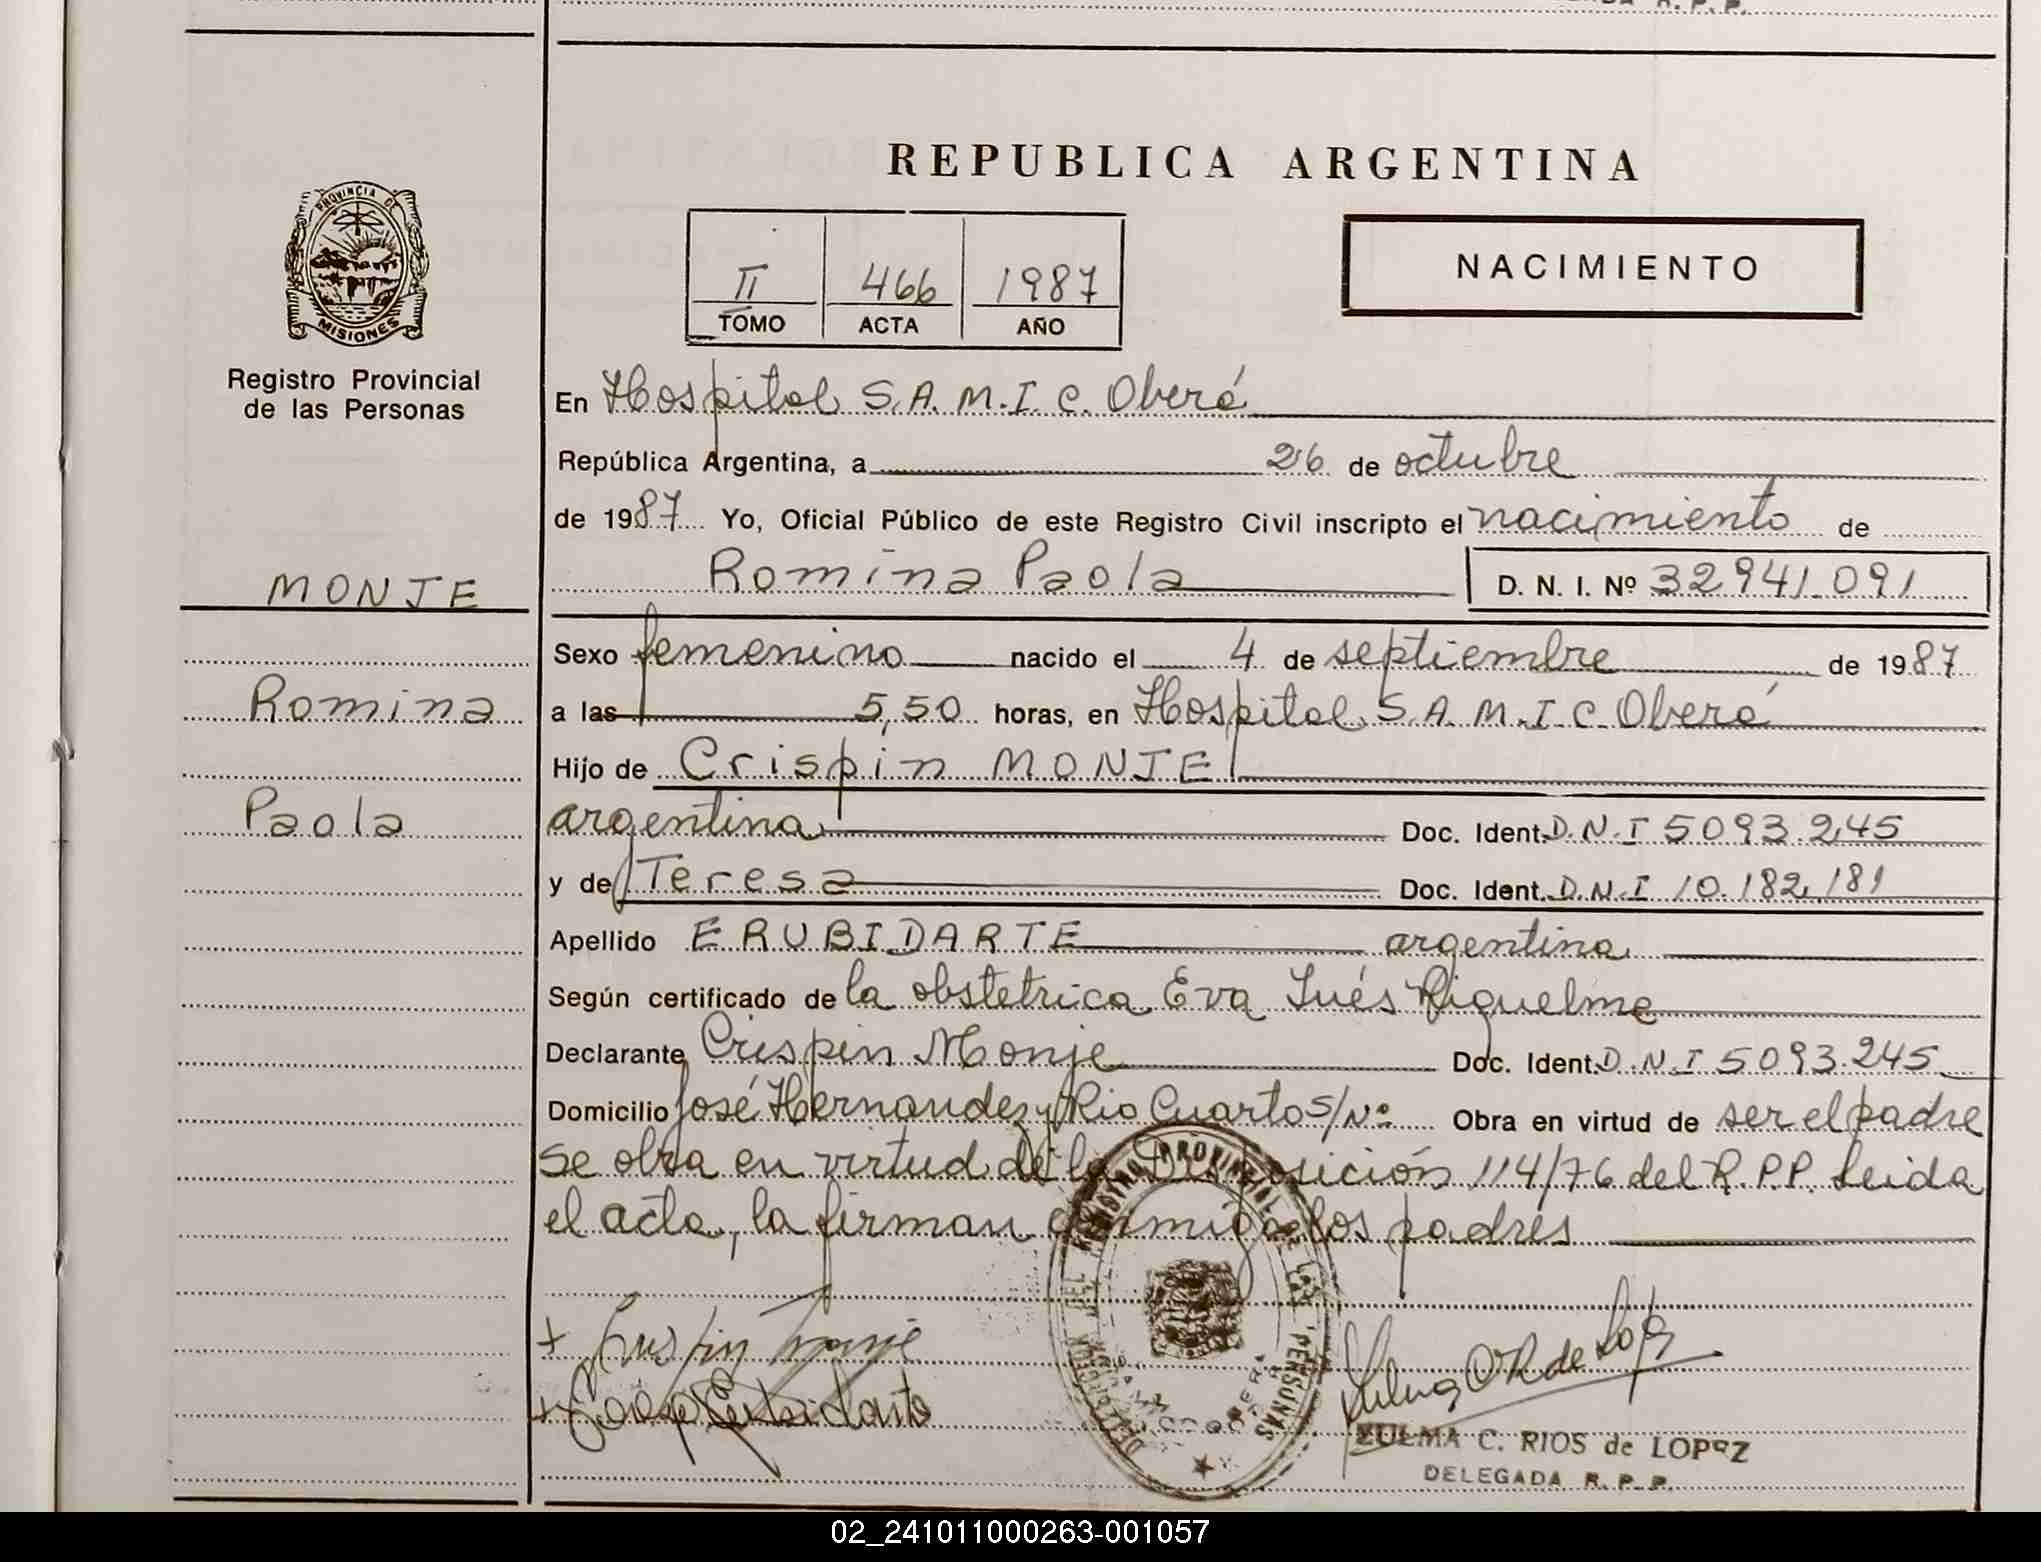 REPUBLICA ARGENTINA
PROVINCIA DE
MISIONES
Registro Provincial
de las Personas
II 466 1987
TOMO ACTA AÑO
NACIMIENTO
En Hospital S.A.M.I.C. Oberá
República Argentina, a 26 de octubre
de 1987 Yo, Oficial Público de este Registro Civil inscripto el nacimiento de
MONJE
Romina Paola D. N. I. Nº 32941.091
Sexo femenino nacido el 4 de septiembre de 1987
Romina
a las 5,50 horas, en Hospital S.A.M.I.C Oberá
Hijo de Crispin MONJE
Paola
argentina Doc. Ident. D.N.I 5093.245
y de Teresa Doc. Ident. D.N.I 10.182.181
Apellido ERUBIDARTE argentina
Según certificado de la obstetrica Eva Inés Riquelme
Declarante Crispin Monje Doc. Ident. D.N.I 5093.245
Domicilio José Hernandez y Rio Cuarto S/Nº Obra en virtud de ser el padre
se obra en virtud de la Disposición 114/76 del R.P.P. Leida
el acta, la firman conmigo los padres
REGISTRO PROVINCIAL DE LAS PERSONAS
Crispin Monje
ZULMA C. RIOS de LOPEZ
DELEGADA R. P. P.
02_241011000263-001057